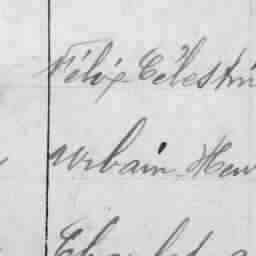 Félix Célestin
Urbain Hen